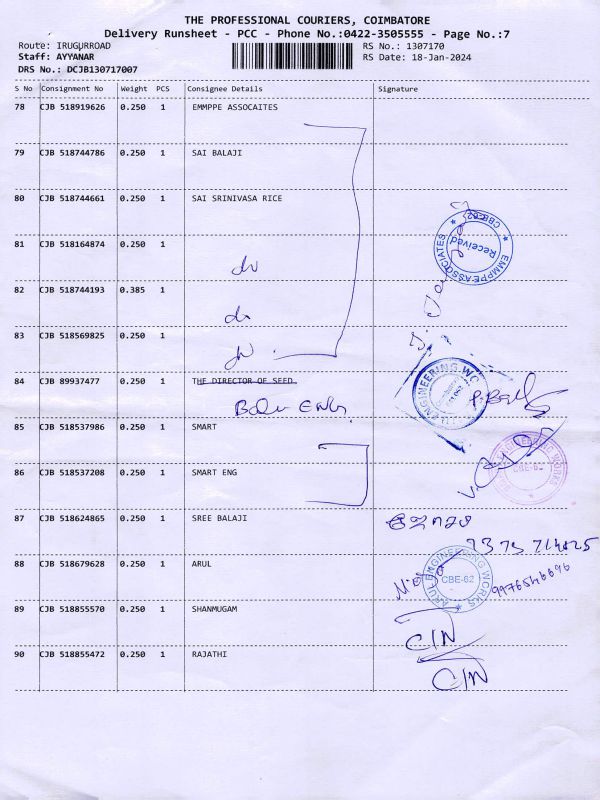 THE PROFESSIONAL COURIERS, COIMBATORE
Delivery Runsheet - PCC - Phone No.:0422-3505555 - Page No.:7
Route: IRUGURROAD RS No.: 1307170
Staff: AYYANAR RS Date: 18-Jan-2024
DRS No.: DCJB130717007
S No Consignment No Weight PCS Consignee Details Signature
78 CJB 518919626 0.250 1 EMMPPE ASSOCAITES
79 CJB 518744786 0.250 1 SAI BALAJI
80 CJB 518744661 0.250 1 SAI SRINIVASA RICE
81 CJB 518164874 0.250 1
EMMPPE ASSOCIATES
Received
CBE-62
82 CJB 518744193 0.385 1
83 CJB 518569825 0.250 1
84 CJB 89937477 0.250 1 THE DIRECTOR OF SEED
ENGINEERING
85 CJB 518537986 0.250 1 SMART
86 CJB 518537208 0.250 1 SMART ENG
ENGINEERING WORKS
CBE-62
87 CJB 518624865 0.250 1 SREE BALAJI
88 CJB 518679628 0.250 1 ARUL
ARUL ENGINEERING WORKS
CBE-62
9976546696
89 CJB 518855570 0.250 1 SHANMUGAM
C/N
90 CJB 518855472 0.250 1 RAJATHI
C/N